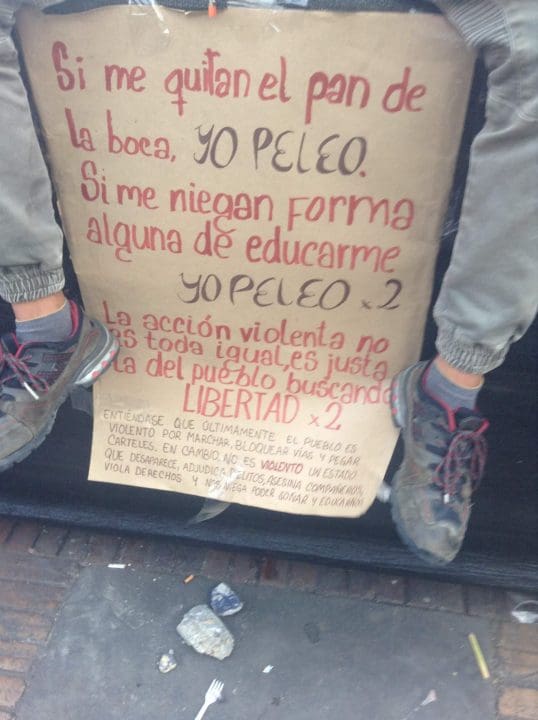 Si me quitan el pan de
la boca, YO PELEO.
Si me niegan forma
alguna de educarme
YO PELEO x2
La acción violenta no
es toda igual, es justa
la del pueblo buscando
LIBERTAD x2
ENTIÉNDASE QUE ÚLTIMAMENTE EL PUEBLO ES
VIOLENTO POR MARCHAR, BLOQUEAR VÍAS Y PEGAR
CARTELES. EN CAMBIO, NO ES VIOLENTO UN ESTADO
QUE DESAPARECE, ADJUDICA DELITOS, ASESINA COMPAÑEROS,
VIOLA DERECHOS Y NOS NIEGA PODER SOÑAR Y EDUCARNOS